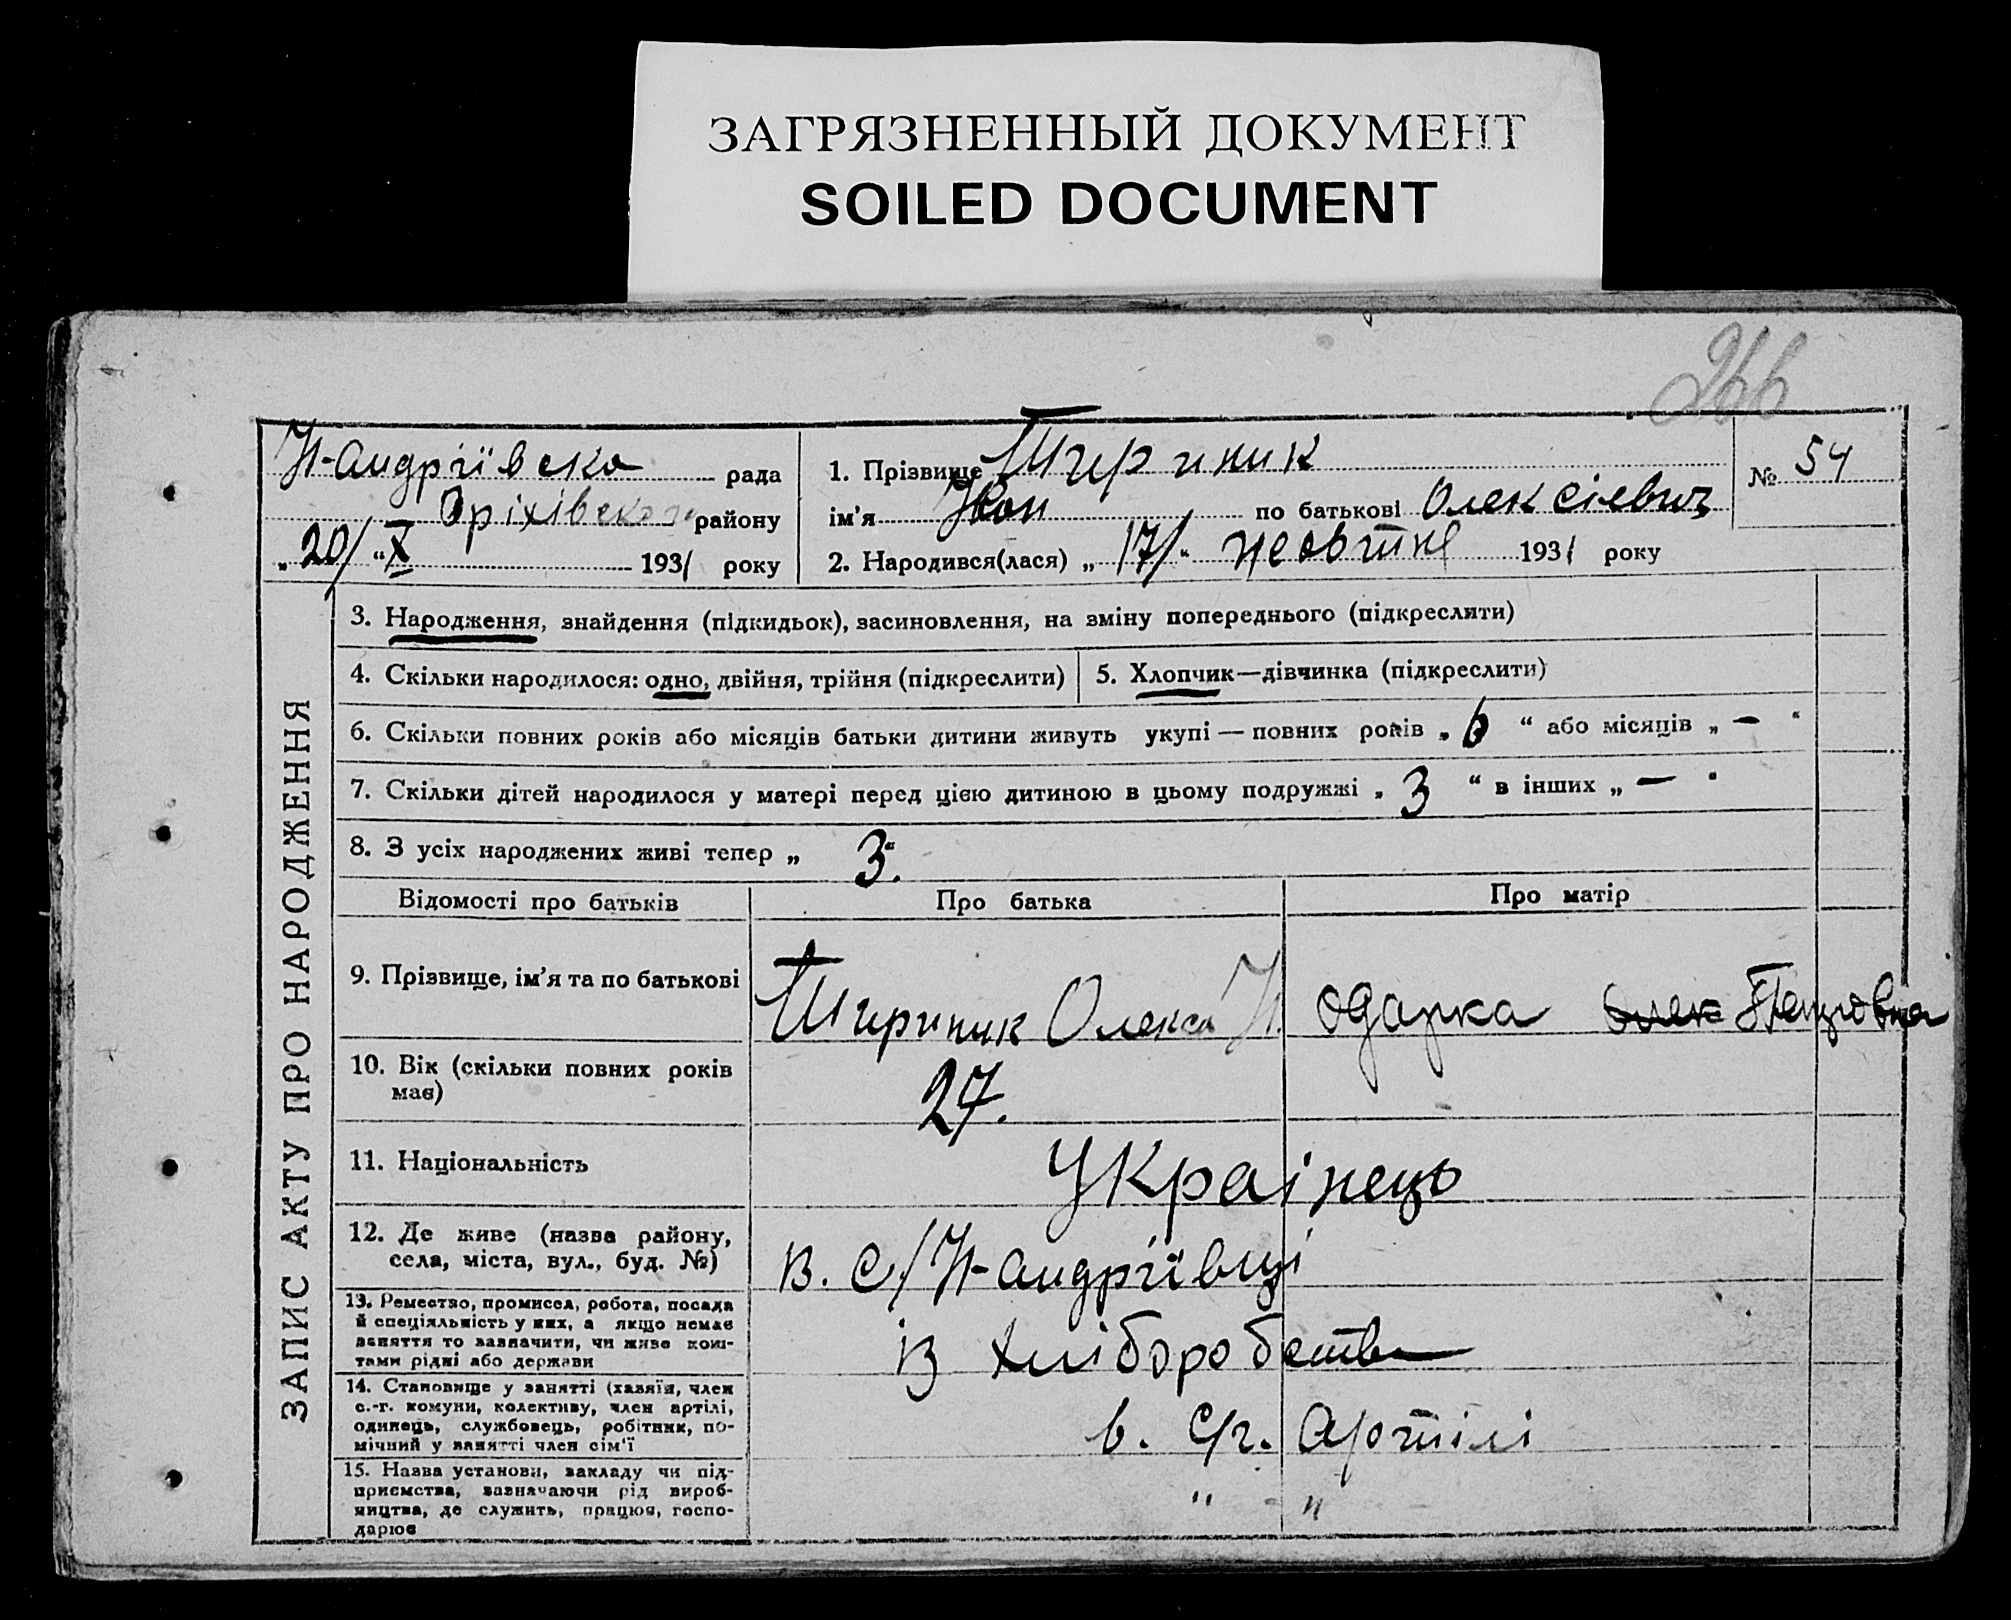 ЗАГРЯЗНЕННЫЙ ДОКУМЕНТ
SOILED DOCUMENT
266
Н-Андріївска рада
Оріхівского району
„20/“ X 1931 року
1. Прізвище
№ 54
ім’я Иван по батькові Олексієвич
2. Народився(лася) „17/“ жовтня 1931 року
ЗАПИС АКТУ ПРО НАРОДЖЕННЯ
3. Народження, знайдення (підкидьок), засиновлення, на зміну попереднього (підкреслити)
4. Скільки народилося: одно, двійня, трійня (підкреслити)
5. Хлопчик—дівчинка (підкреслити)
6. Скільки повних років або місяців батьки дитини живуть укупі — повних років „6“ або місяців „—“
7. Скільки дітей народилося у матері перед цією дитиною в цьому подружжі „3“ в інших „—“
8. З усіх народжених живі тепер „3“.
Відомості про батьків
Про батька
Про матір
9. Прізвище, ім’я та по батькові
Олекса И.
Одарка Петровна
10. Вік (скільки повних років
має)
27.
11. Національність
Украінець
12. Де живе (назва району,
села, міста, вул., буд. №)
в. с/Н-Андріївці
13. Ремество, промисел, робота, посада
й спеціяльність у них, а якщо немає
заняття то зазначити, чи живе кош-
тами рідні або держави
із хліборобства
14. Становище у занятті (хазяїн, член
с.-г. комуни, колективу, член артілі,
одинець, службовець, робітник, по-
мічний у занятті член сім’ї
в. с/г. Артілі
15. Назва установи, закладу чи під-
приємства, зазначаючи рід вироб-
ництва, де служить, працює, госпо-
дарює
" - "